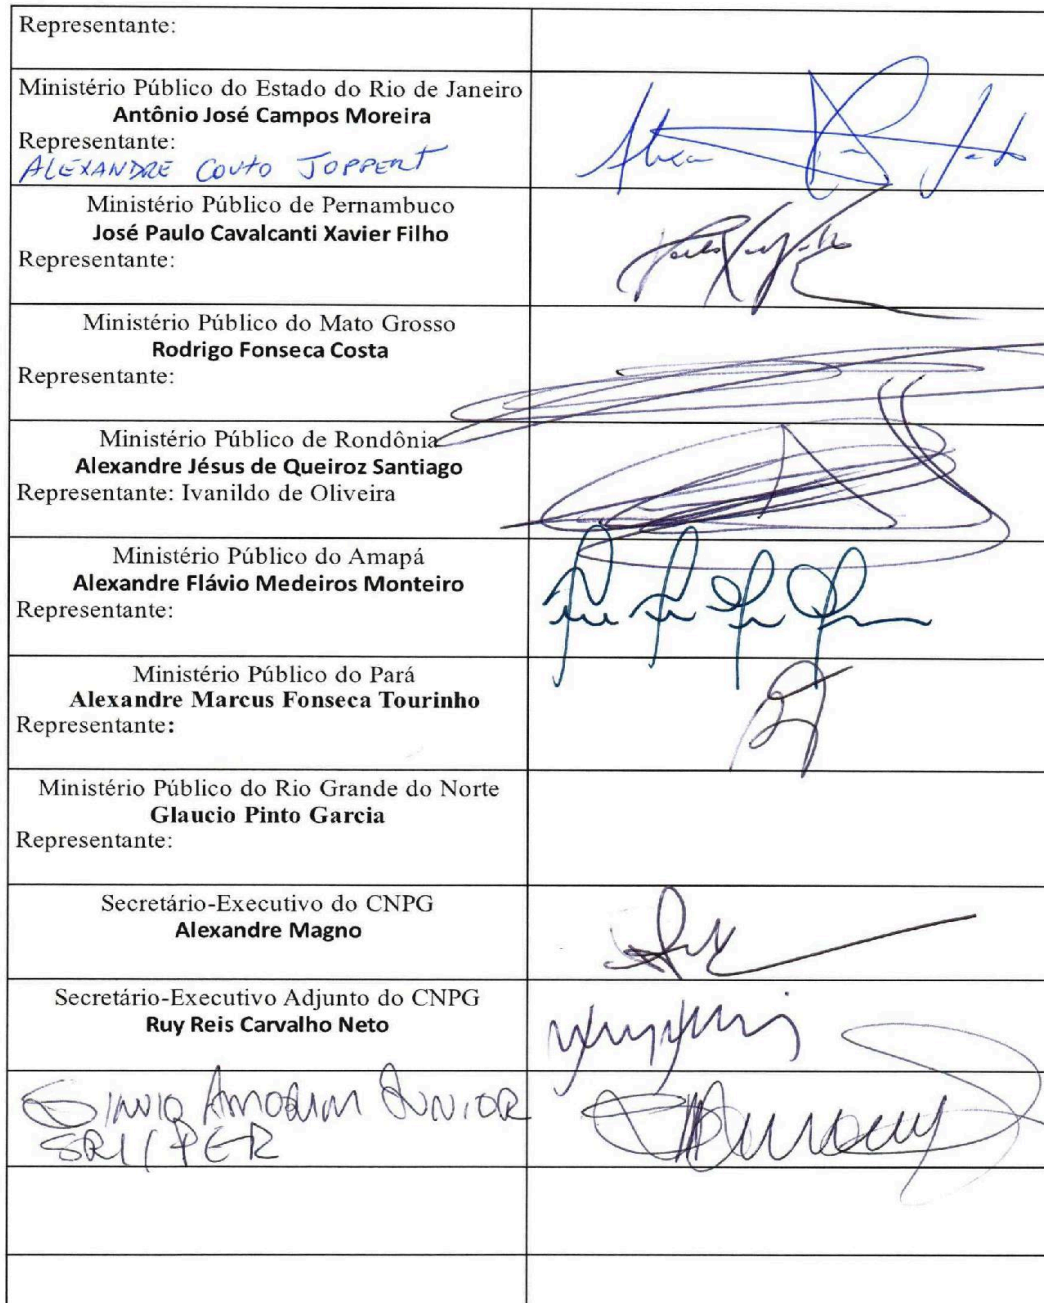 Representante:
Ministério Público do Estado do Rio de Janeiro
Antônio José Campos Moreira
Representante:
ALEXANDRE COUTO JOPPERT
Ministério Público de Pernambuco
José Paulo Cavalcanti Xavier Filho
Representante:
Ministério Público do Mato Grosso
Rodrigo Fonseca Costa
Representante:
Ministério Público de Rondônia
Alexandre Jésus de Queiroz Santiago
Representante: Ivanildo de Oliveira
Ministério Público do Amapá
Alexandre Flávio Medeiros Monteiro
Representante:
Ministério Público do Pará
Alexandre Marcus Fonseca Tourinho
Representante:
Ministério Público do Rio Grande do Norte
Glaucio Pinto Garcia
Representante:
Secretário-Executivo do CNPG
Alexandre Magno
Secretário-Executivo Adjunto do CNPG
Ruy Reis Carvalho Neto
AMORIM JUNIOR